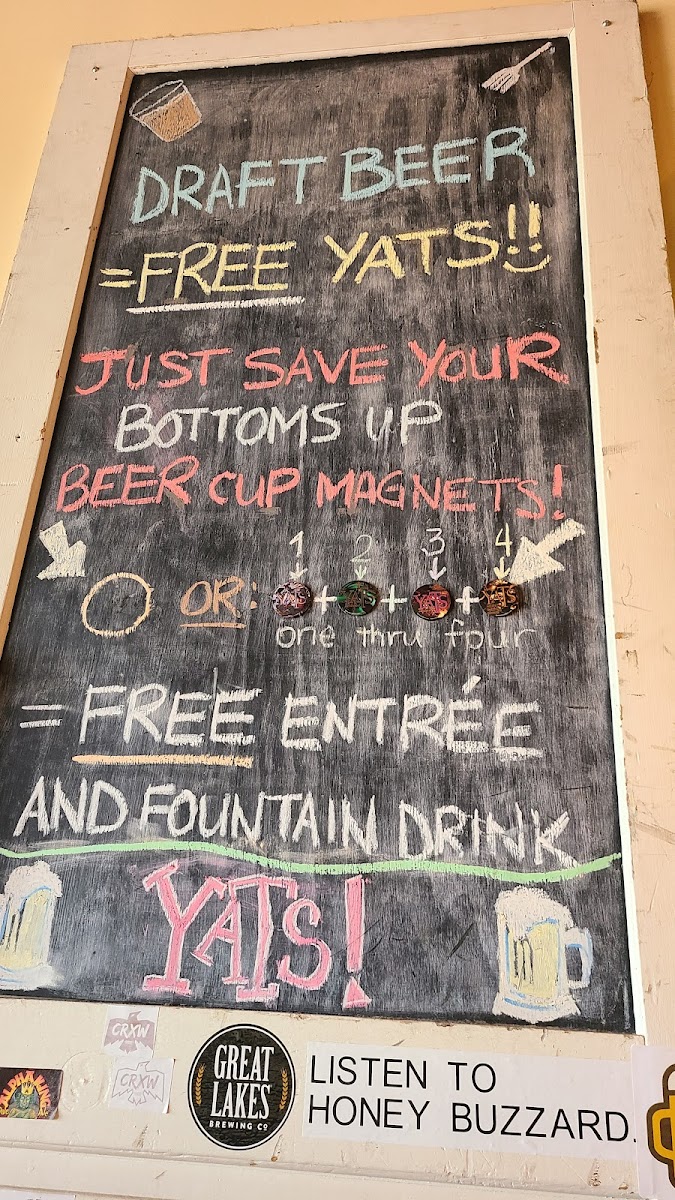 DRAFT BEER
=FREE YATS!!
JUST SAVE YOUR
BOTTOMS UP
BEER CUP MAGNETS!
1 2 3 4
OR: YATS + YATS + YATS + YATS
one thru four
= FREE ENTRÉE
AND FOUNTAIN DRINK
YATS!
CRXW
CRXW
ALPHA KING
GREAT
LAKES
BREWING CO
LISTEN TO
HONEY BUZZARD.